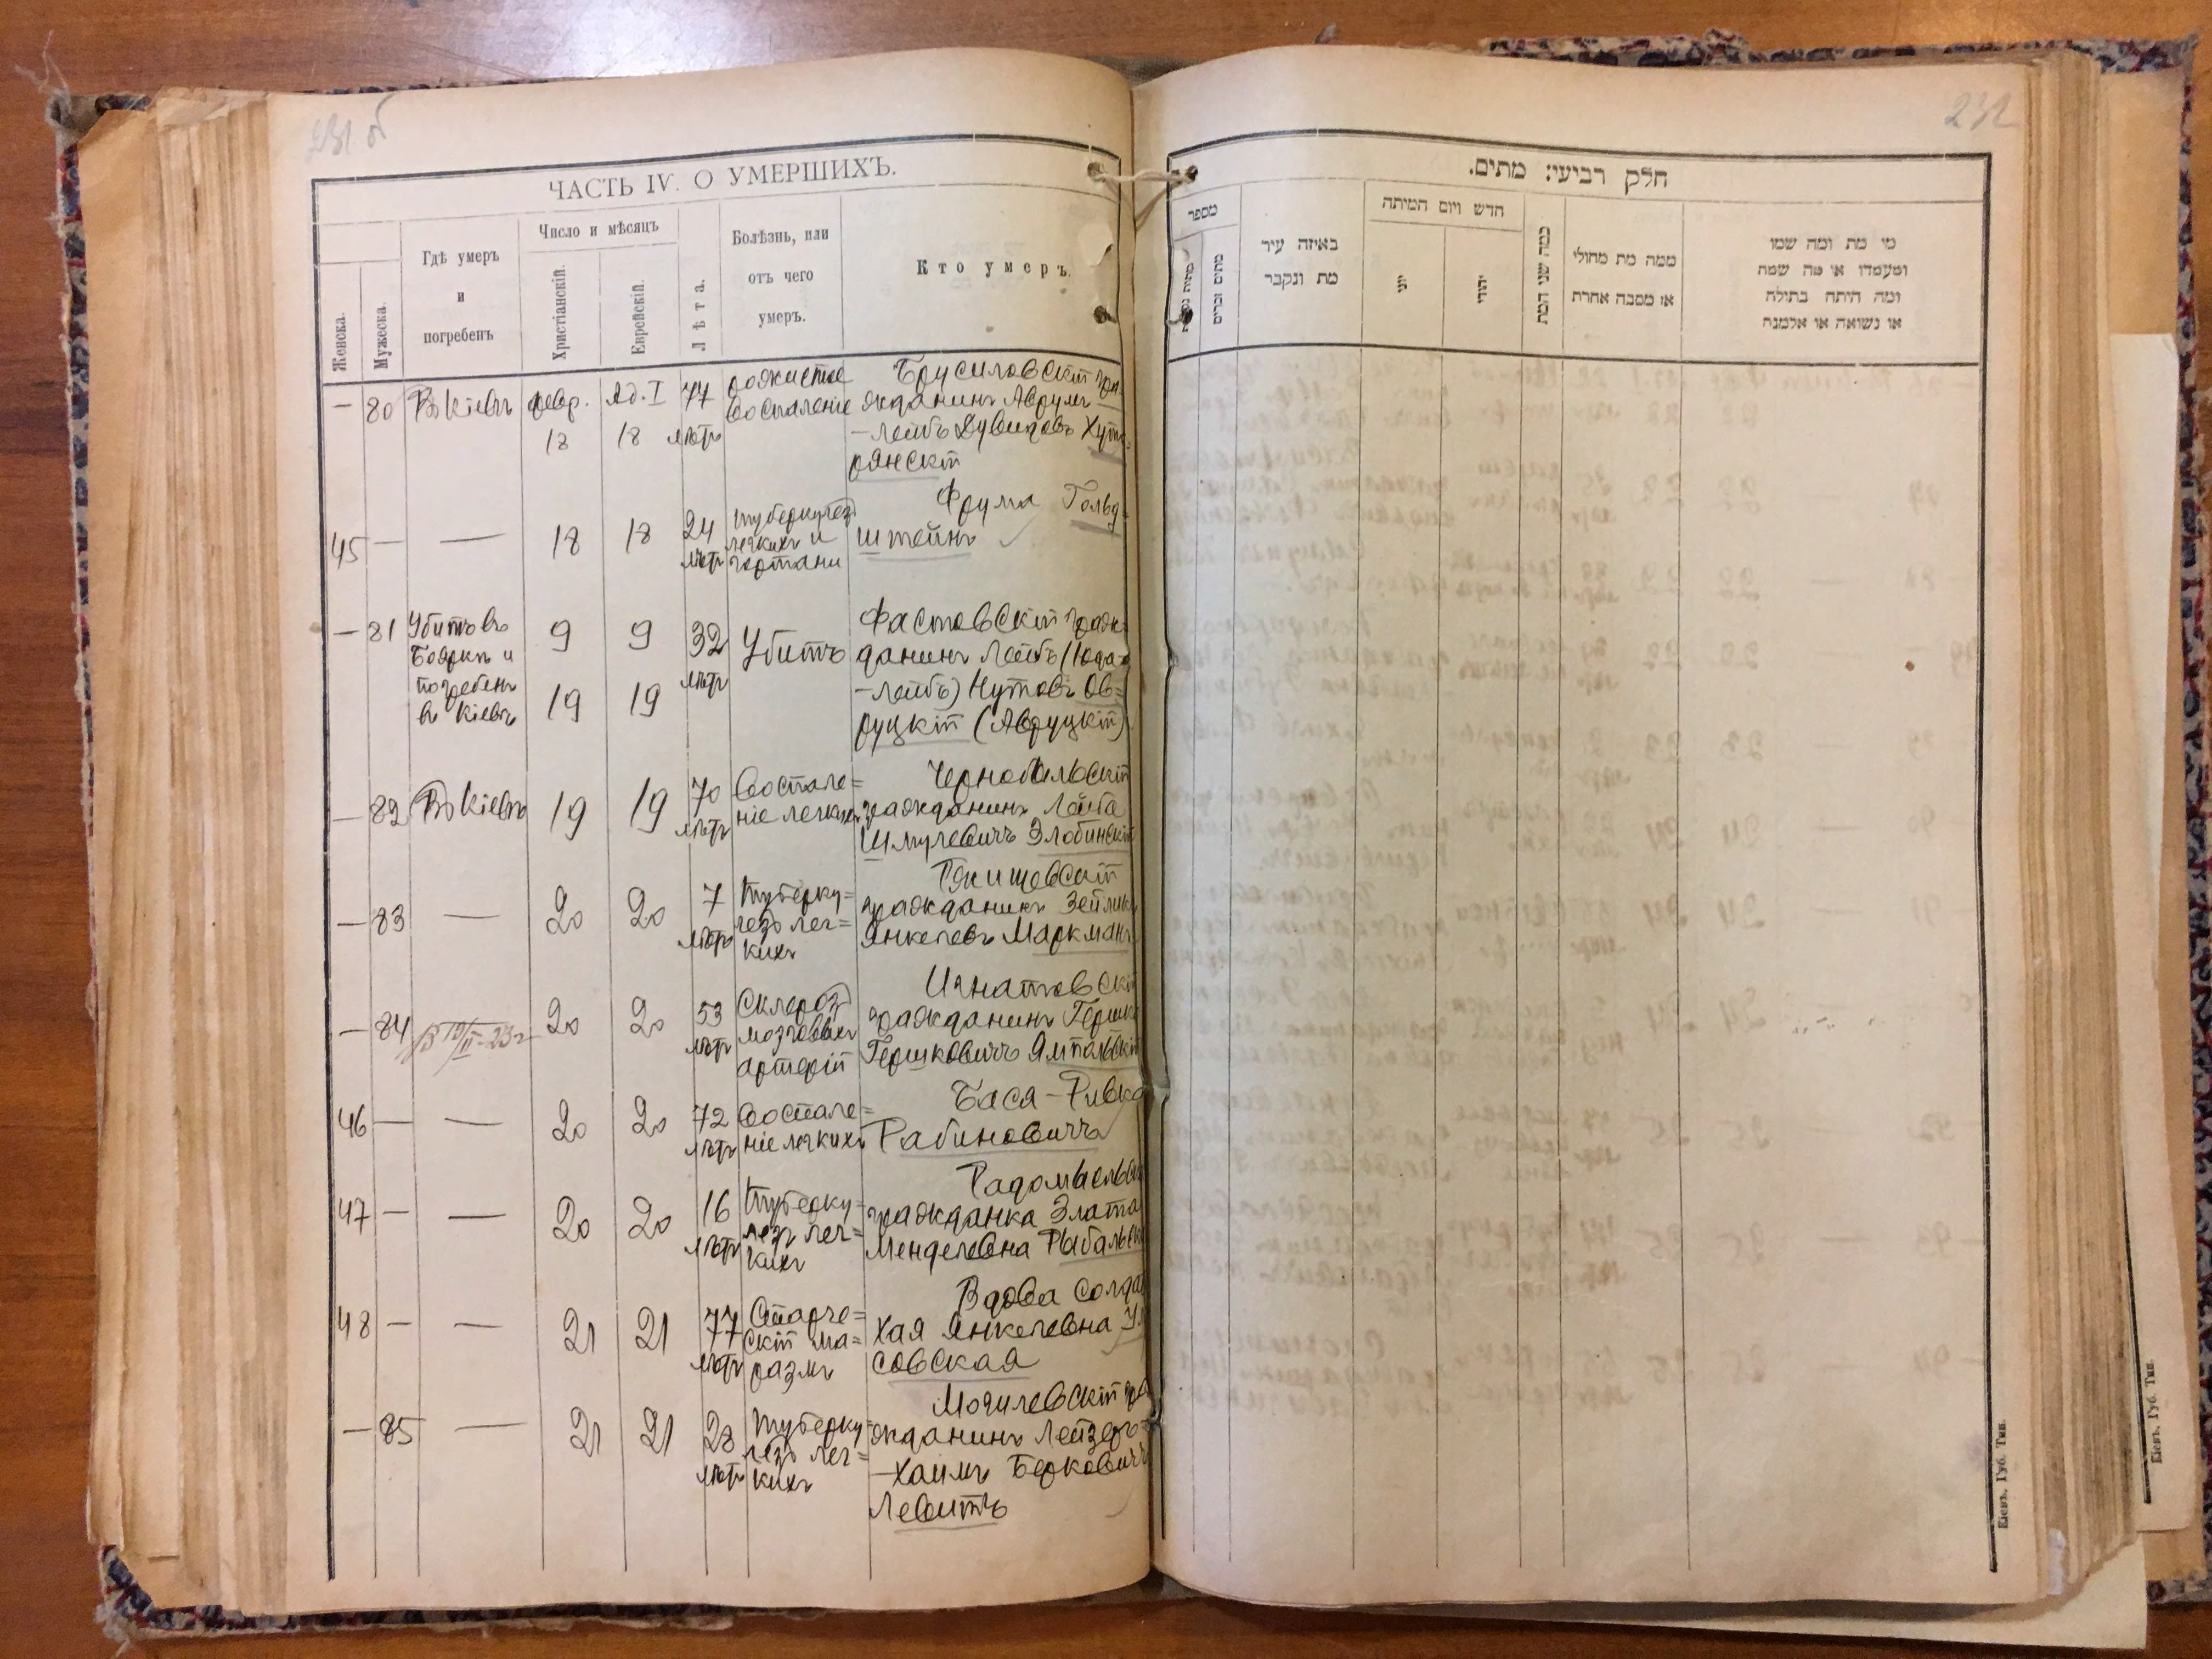 231 об
ЧАСТЬ IV. О УМЕРШИХЪ.
Женска.
Мужеска.
Гдѣ умеръ
и
погребенъ
Число и мѣсяцъ
Христіанскій.
Еврейскій.
Лѣта.
Болѣзнь, или
отъ чего
умеръ.
Кто умеръ.
— 80 Въ Кіевѣ февр. 18 Ад. I 18 77 лѣтъ
рожистое
воспаленіе
Брусиловскій гра-
жданинъ Аврумъ-
-Лейбъ Дувидовъ Хут
рянскій
45 — — 18 18 24 лѣтъ
туберкулез
легкихъ и
гортани
Фрума Гольд-
штейнъ
— 81
Убитъ въ
Бояркѣ и
погребенъ
въ Кіевѣ
9 19 9 19 32 лѣтъ
Убитъ
Фастовскій граж-
данинъ Лейбъ (Юда-
-Лейбъ) Нутовъ Ов=
руцкій (Авруцкій)
— 82 Въ Кіевѣ 19 19 70 лѣтъ
Воспале=
ніе легкихъ
Чернобыльскій
гражданинъ Лейба
Шмулевичъ Злобинскій
— 83 — 20 20 7 лѣтъ
Туберку=
лезъ лег=
кихъ
Ржищевскій
гражданинъ Зейликъ
Янкелевъ Маркманъ
— 84 20 20 53 лѣтъ
Склероз
мозговыхъ
артерій
Игнатовскій
гражданинъ Гершко
Гершковичъ Ямпольскій
46 — — 20 20 72 лѣтъ
Воспале=
ніе легкихъ
Бася-Ривка
Рабиновичъ
47 — — 20 20 16 лѣтъ
Туберку=
лезъ лег=
кихъ
Радомысльск
гражданка Злата
Менделевна Рыбальск
48 — — 21 21 77 лѣтъ
Старче=
скій ма=
размъ
Вдова солда
Хая Янкелевна У
совская
— 85 — 21 21 28 лѣтъ
Туберку=
лезъ лег=
кихъ
Могилевскій гра
жданинъ Лейзеръ=
-Хаимъ Берковичъ
Левитъ
232
חלק רביעי: מתים.
מספר
מתים זכרים
באיזה עיר
מת ונקבר
חדש ויום המיתה
יוני
יהודי
כמה שני המת
ממה מת מחולי
או מסבה אחרת
מי מת ומה שמו
ומעמדו או מה שמה
ומה היתה בתולה
או נשואה או אלמנה
Кіевъ. Губ. Тип.
Кіевъ. Губ. Тип.